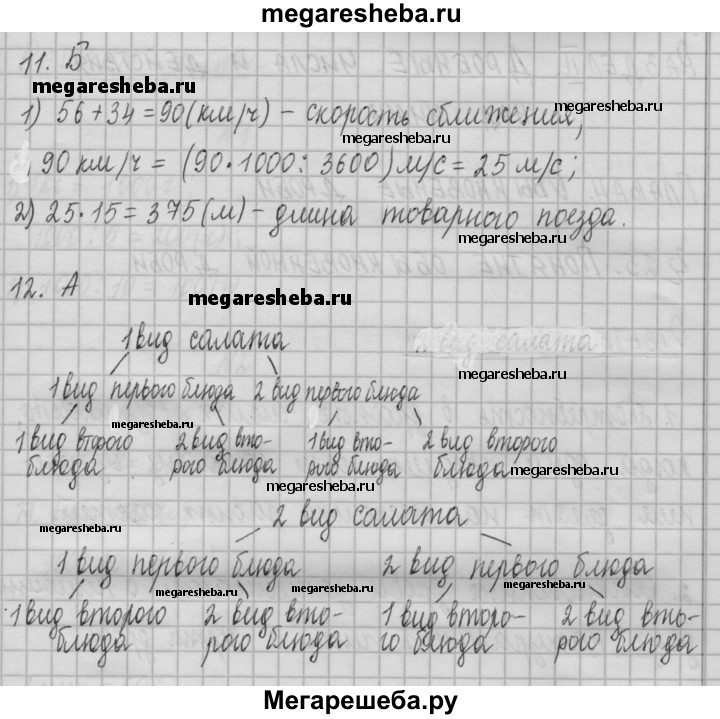 megaresheba.ru
11. Б
megaresheba.ru
1) 56+34=90(км/ч) - скорость сближения;
megaresheba.ru
megaresheba.ru
90 км/ч = (90·1000:3600)м/с = 25 м/с;
2) 25·15=375(м) - длина товарного поезда.
megaresheba.ru
12. А
megaresheba.ru
1 вид салата
megaresheba.ru
1 вид первого блюда 2 вид первого блюда
megaresheba.ru
1 вид второго 2 вид вто- 1 вид вто- 2 вид второго
блюда рого блюда рого блюда блюда
megaresheba.ru
megaresheba.ru
2 вид салата
megaresheba.ru
megaresheba.ru
1 вид первого блюда 2 вид первого блюда
megaresheba.ru
megaresheba.ru
1 вид второго 2 вид вто- 1 вид второ- 2 вид вто-
блюда рого блюда го блюда рого блюда
Мегарешеба.ру